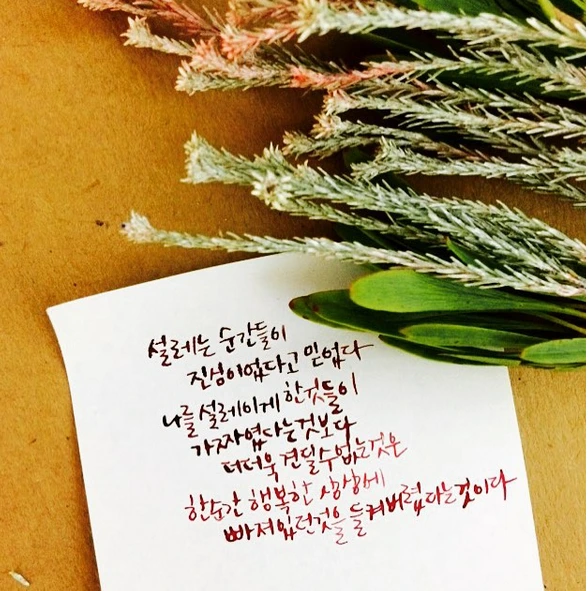 설레는 순간들이
진심이었다고 믿었다
나를 설레이게 한 것들이
가짜였다는것보다
더더욱 견딜수없는것은
한순간 행복한 상상에
빠져있던것을 들켜버렸다는것이다